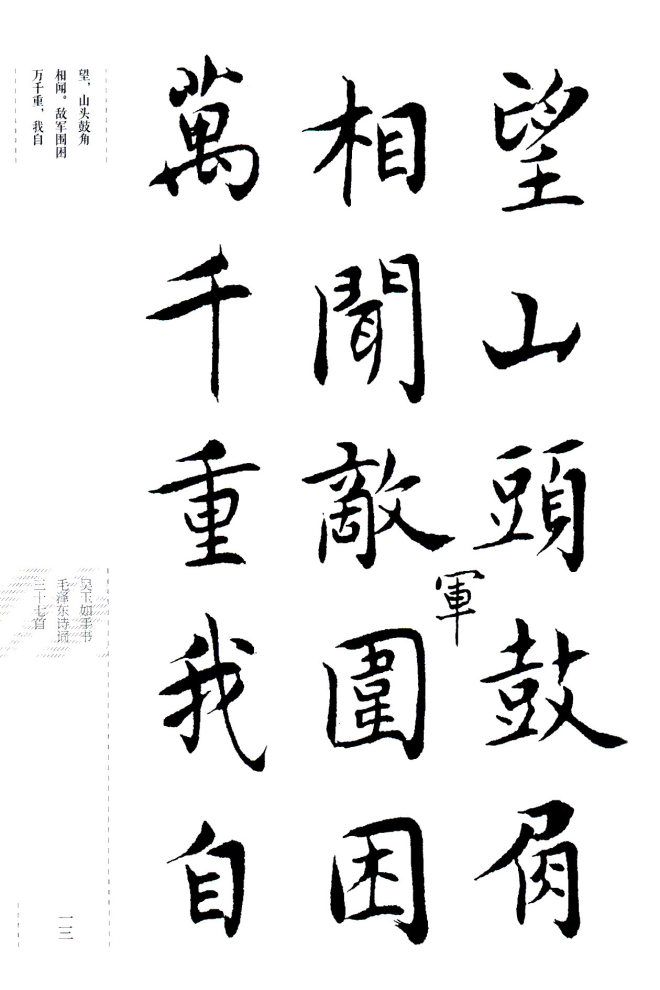 望山頭鼓角
相聞敵軍圍困
萬千重我自
望，山头鼓角
相闻。敌军围困
万千重，我自
吴玉如手书
毛泽东诗词
三十七首
二三